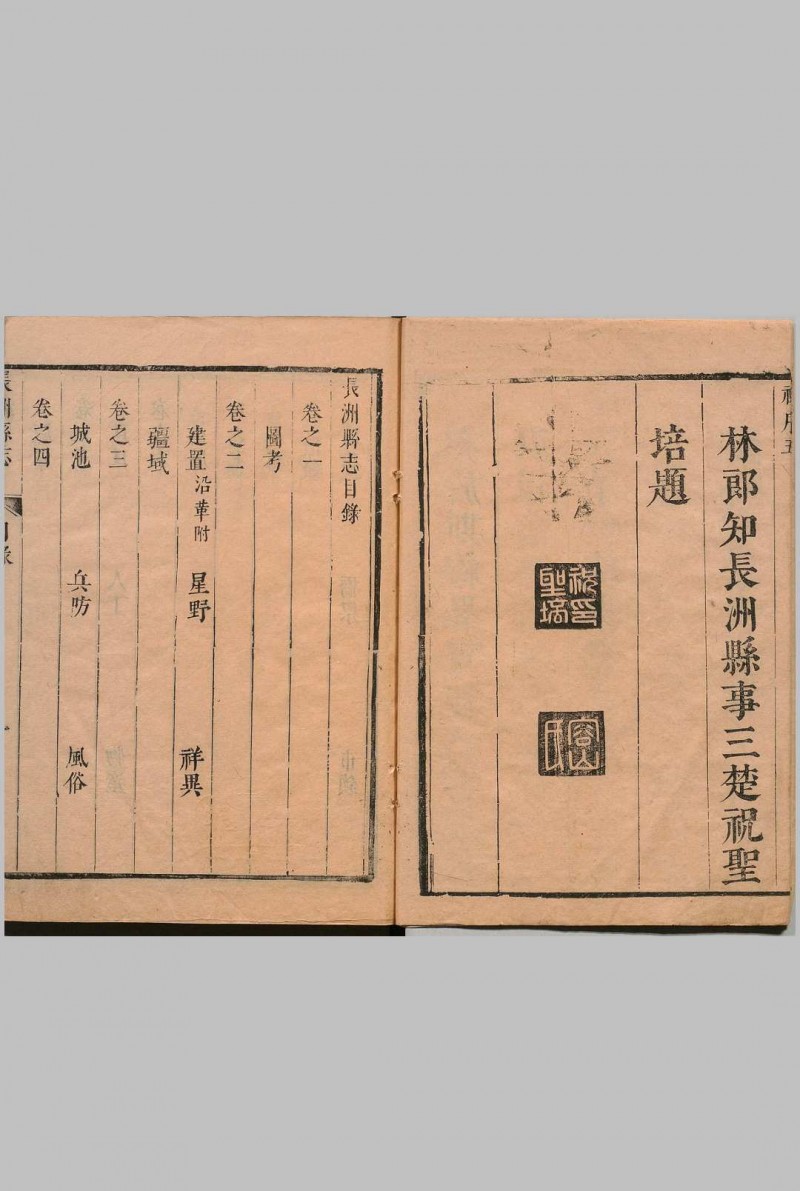 林郎知長洲縣事三楚祝聖
培題
長洲縣志目錄
卷之一
圖考
卷之二
建置 沿革附 星野 祥異
疆域
卷之三
城池 兵防 風俗
卷之四
長洲縣志 目錄